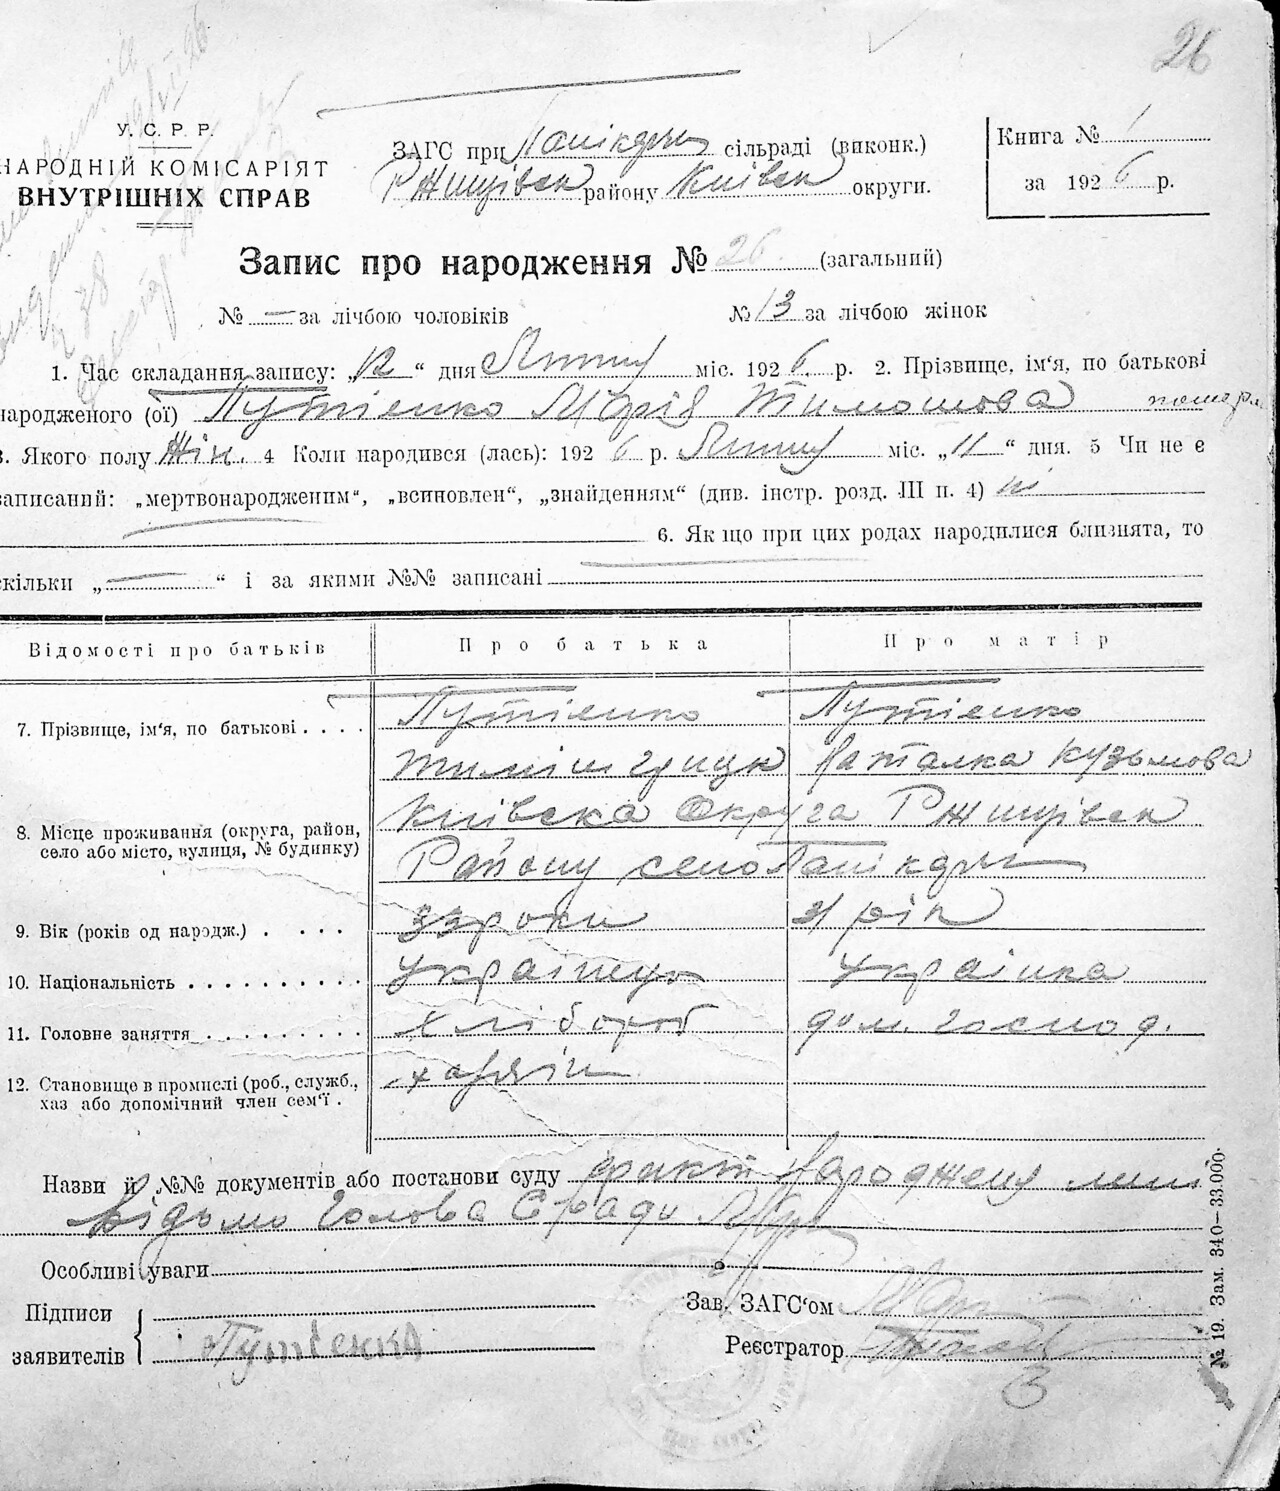 26
У. С. Р. Р.
НАРОДНІЙ КОМІСАРІЯТ
ВНУТРІШНІХ СПРАВ
ЗАГС при сільраді (виконк.)
Ржищівск району Київск округи.
Книга № 1
за 1926 р.
Запис про народження № 26. (загальний)
№ — за лічбою чоловіків № 13 за лічбою жінок
1. Час складання запису: „12“ дня міс. 1926 р. 2. Прізвище, ім‘я, по батькові
народженого (ої) Путіенко Марія Тимошова
3. Якого полу Жін. 4 Коли народився (лась): 1926 р. міс. „11“ дня. 5 Чи не є
записаний: „мертвонародженим“, „всиновлен“, „знайденням“ (див. інстр. розд. III п. 4) ні
6. Як що при цих родах народилися близнята, то
скільки „—“ і за якими №№ записані
Відомості про батьків Про батька Про матір
7. Прізвище, ім‘я, по батькові . . . . Путіенко Путіенко
Наталка Кузьмова
Київска Округа Ржищівск
8. Місце проживання (округа, район,
село або місто, вулиця, № будинку)
Району село
9. Вік (років од народж.) . . . . . 33 роки 31 рік
10. Національність . . . . . . . . . . Українець Українка
11. Головне заняття . . . . . . . . . Хлібороб дом. господ.
12. Становище в промислі (роб., служб.,
хаз або допомічний член сем‘ї .
хазяїн
Назви й №№ документів або постанови суду факт народженя мині
відомо Голова Сради
Особливі уваги
Підписи
заявителів
Путіенко
Зав. ЗАГС‘ом
Реєстратор
№ 19. Зам. 340–33.000